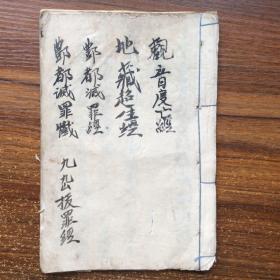 觀音度亡經
地藏超生經
酆都滅罪經
酆都滅罪懺
九幽拔罪經